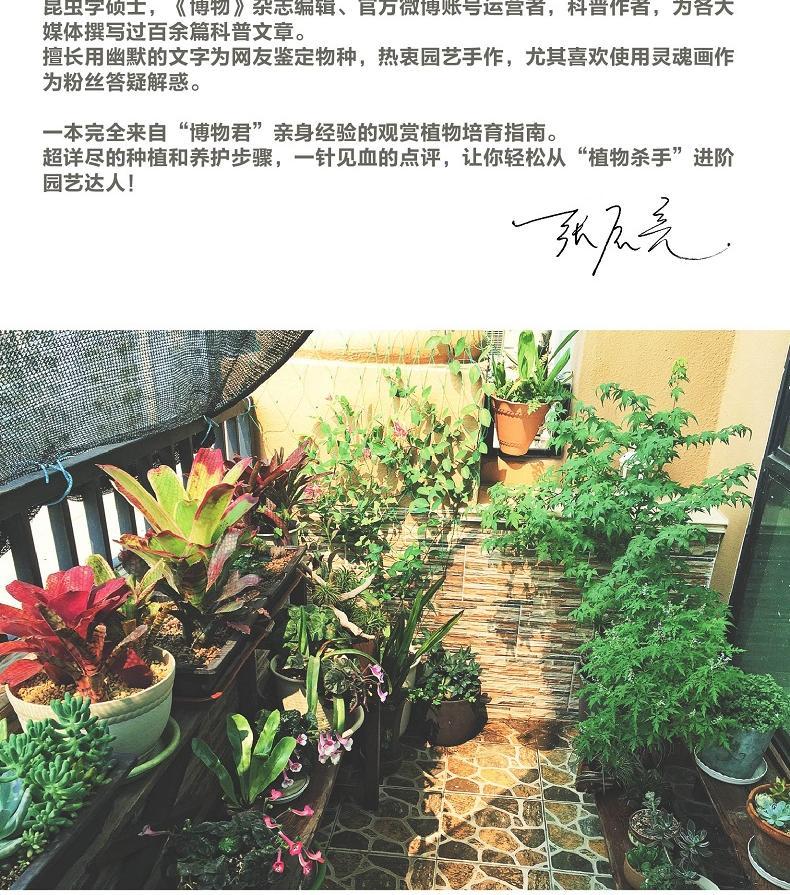 昆虫学硕士，《博物》杂志编辑、官方微博账号运营者，科普作者，为各大
媒体撰写过百余篇科普文章。
擅长用幽默的文字为网友鉴定物种，热衷园艺手作，尤其喜欢使用灵魂画作
为粉丝答疑解惑。
一本完全来自“博物君”亲身经验的观赏植物培育指南。
超详尽的种植和养护步骤，一针见血的点评，让你轻松从“植物杀手”进阶
园艺达人！
张辰亮